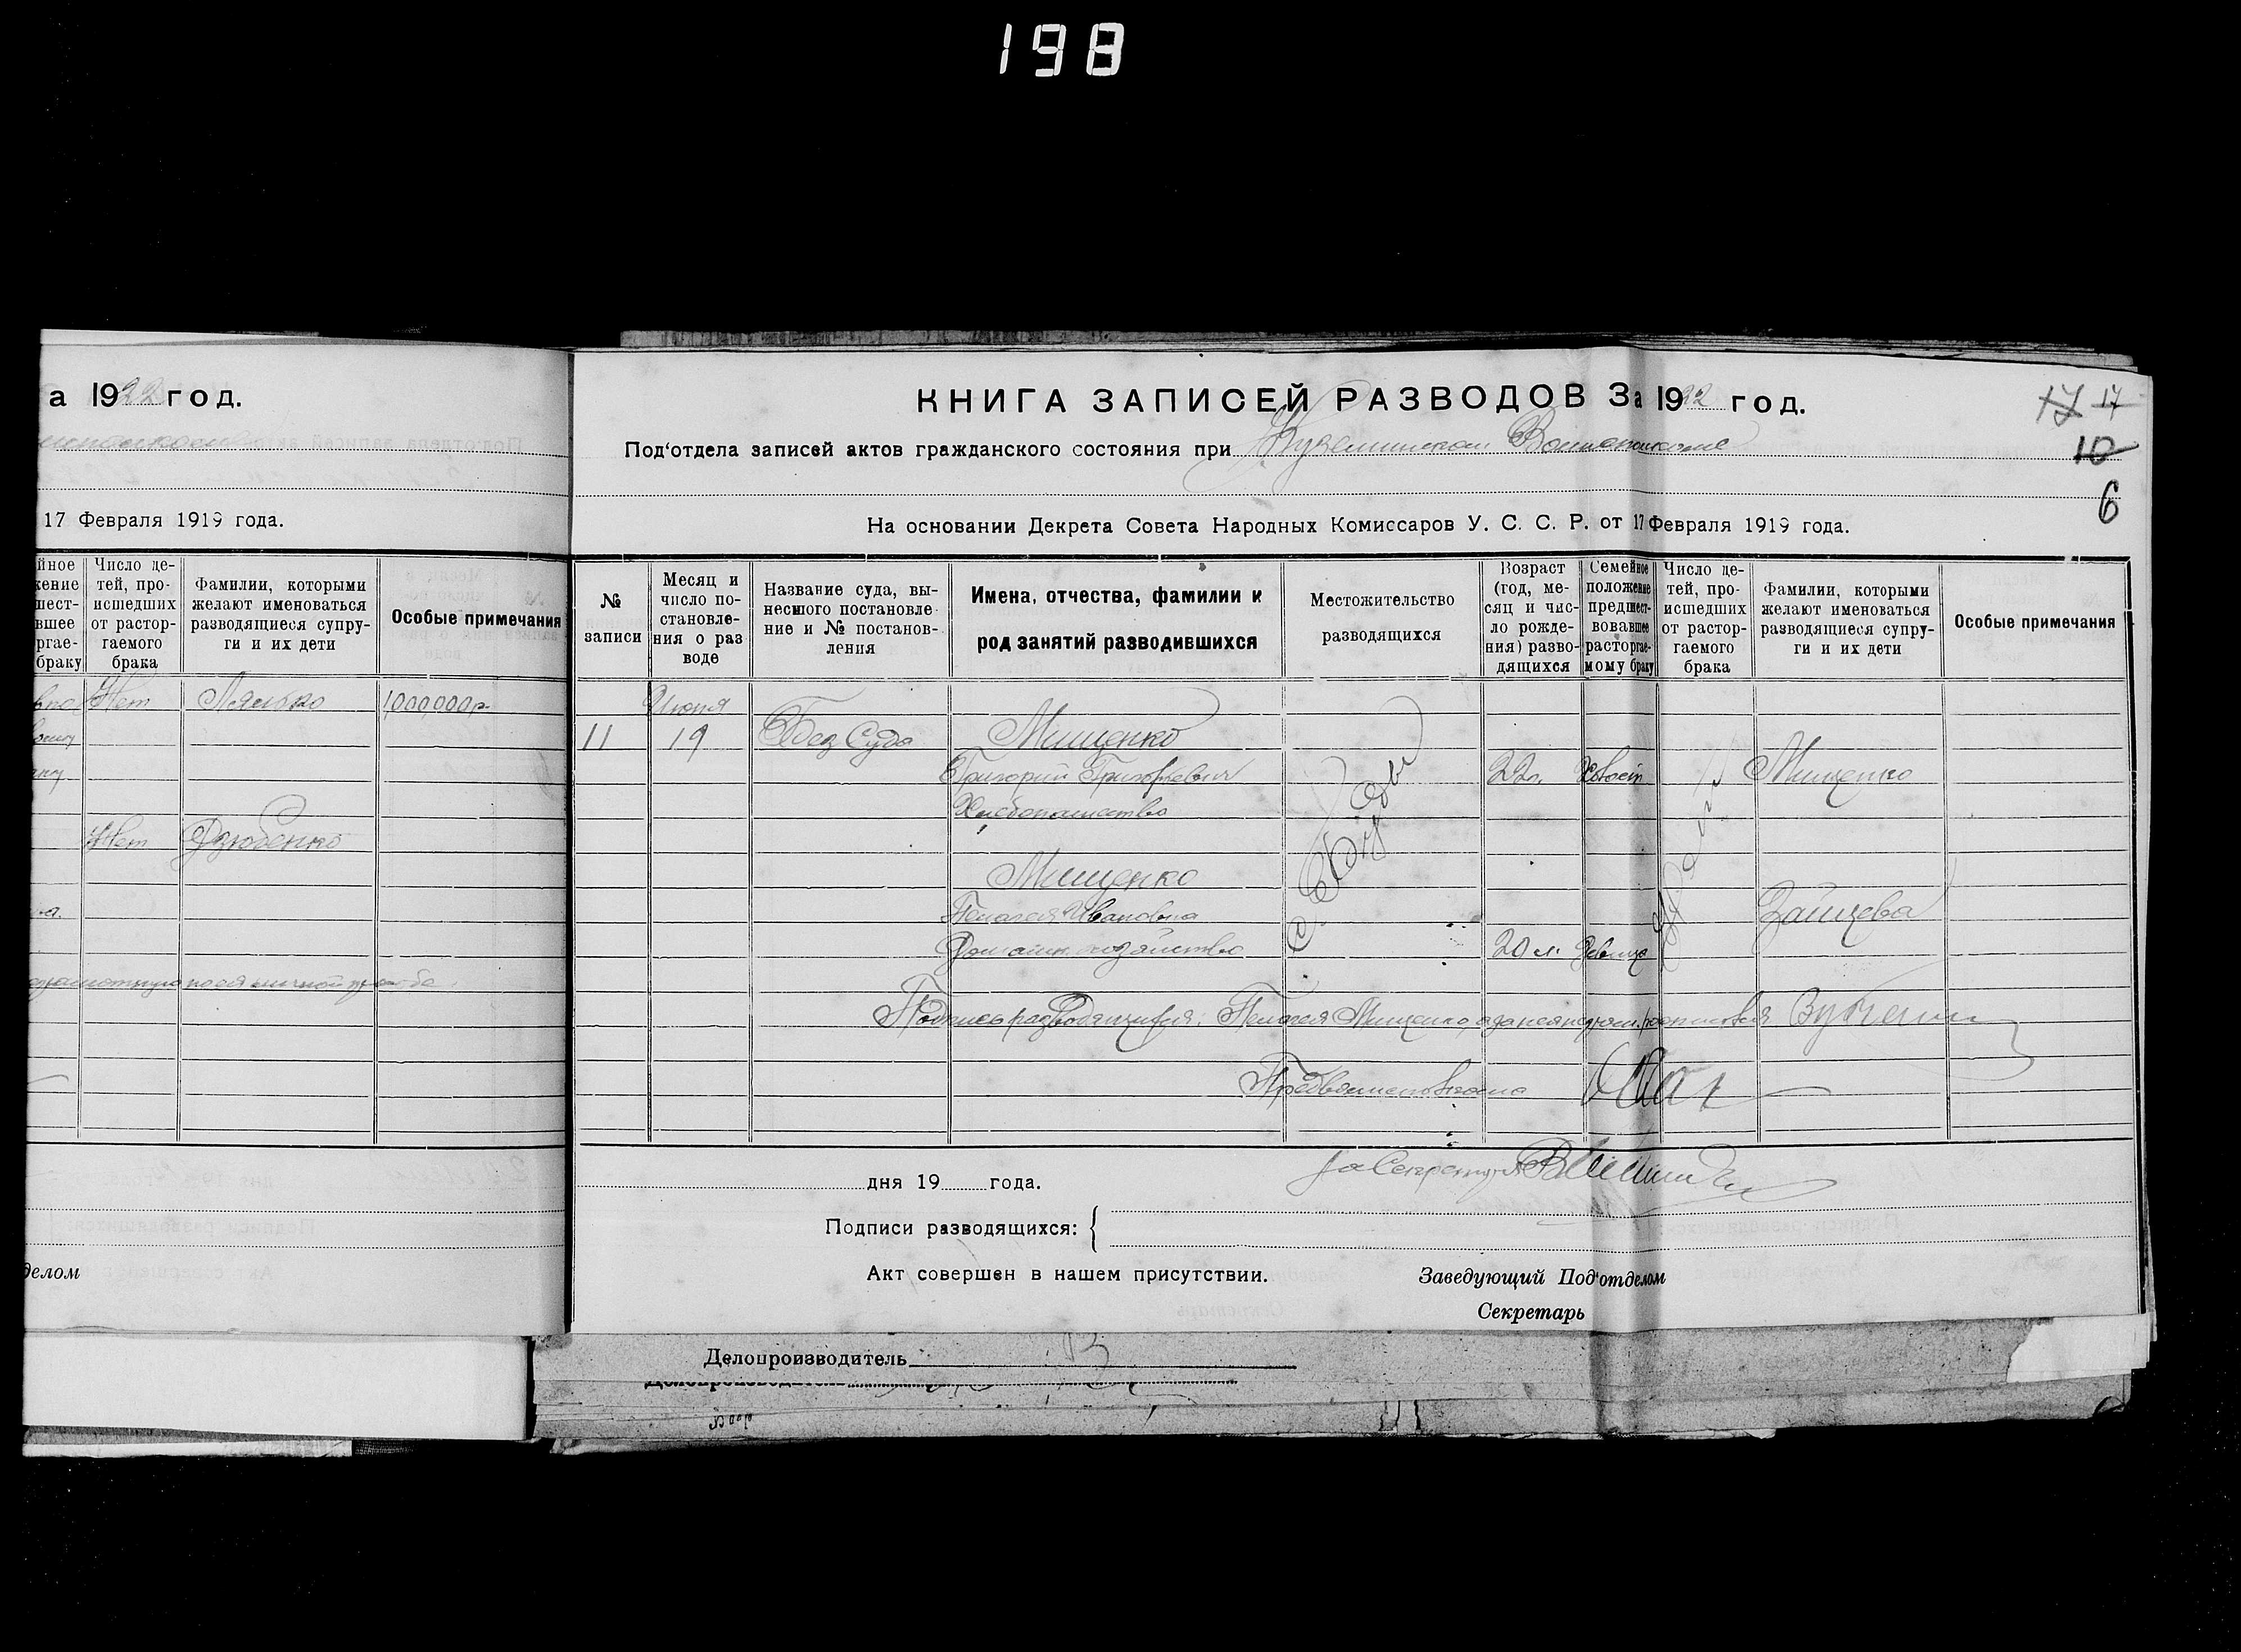 198
а 1922 год.
17 Февраля 1919 года.
йное
жение
шест-
вшее
ргае-
браку
Число де-
тей, про-
исшедших
от растор-
гаемого
брака
Фамилии, которыми
желают именоваться
разводящиеся супру-
ги и их дети
Особые примечания
Нет
Лялько
1,000,000 р.
Нет
Дзюбенко
делом
КНИГА ЗАПИСЕЙ РАЗВОДОВ За 1922 год.
17 17
Под‘отдела записей актов гражданского состояния при
10
6
На основании Декрета Совета Народных Комиссаров У. С. С. Р. от 17 Февраля 1919 года.
№
записи
Месяц и
число по-
становле-
ния о раз
воде
Название суда, вы-
несшого постановле-
ние и № постанов-
ления
Имена, отчества, фамилии и
род занятий разводившихся
Местожительство
разводящихся
Возраст
(год, ме-
сяц и чис-
ло рожде-
ния) разво-
дящихся
Семейное
положение
предшест-
вовавшее
расторгае-
мому браку
Число де-
тей, про-
исшедших
от растор-
гаемого
брака
Фамилии, которыми
желают именоваться
разводящиеся супру-
ги и их дети
Особые примечания
Июня
11 19 Без Суда Мищенко
Григорий Григорьевич 22 л. Холост Мищенко
Хлебопашество
Мищенко
Пелагея Ивановна Зайцева
Домашн. хозяйство 20 л. Девица
Подпись разводящихся: Пелагея Мищенко, а за нея неграм. расписался
Предволисполкома
за Секретаря
дня 19 года.
Подписи разводящихся:
Акт совершен в нашем присутствии.
Заведующий Под‘отделом
Секретарь
Делопроизводитель